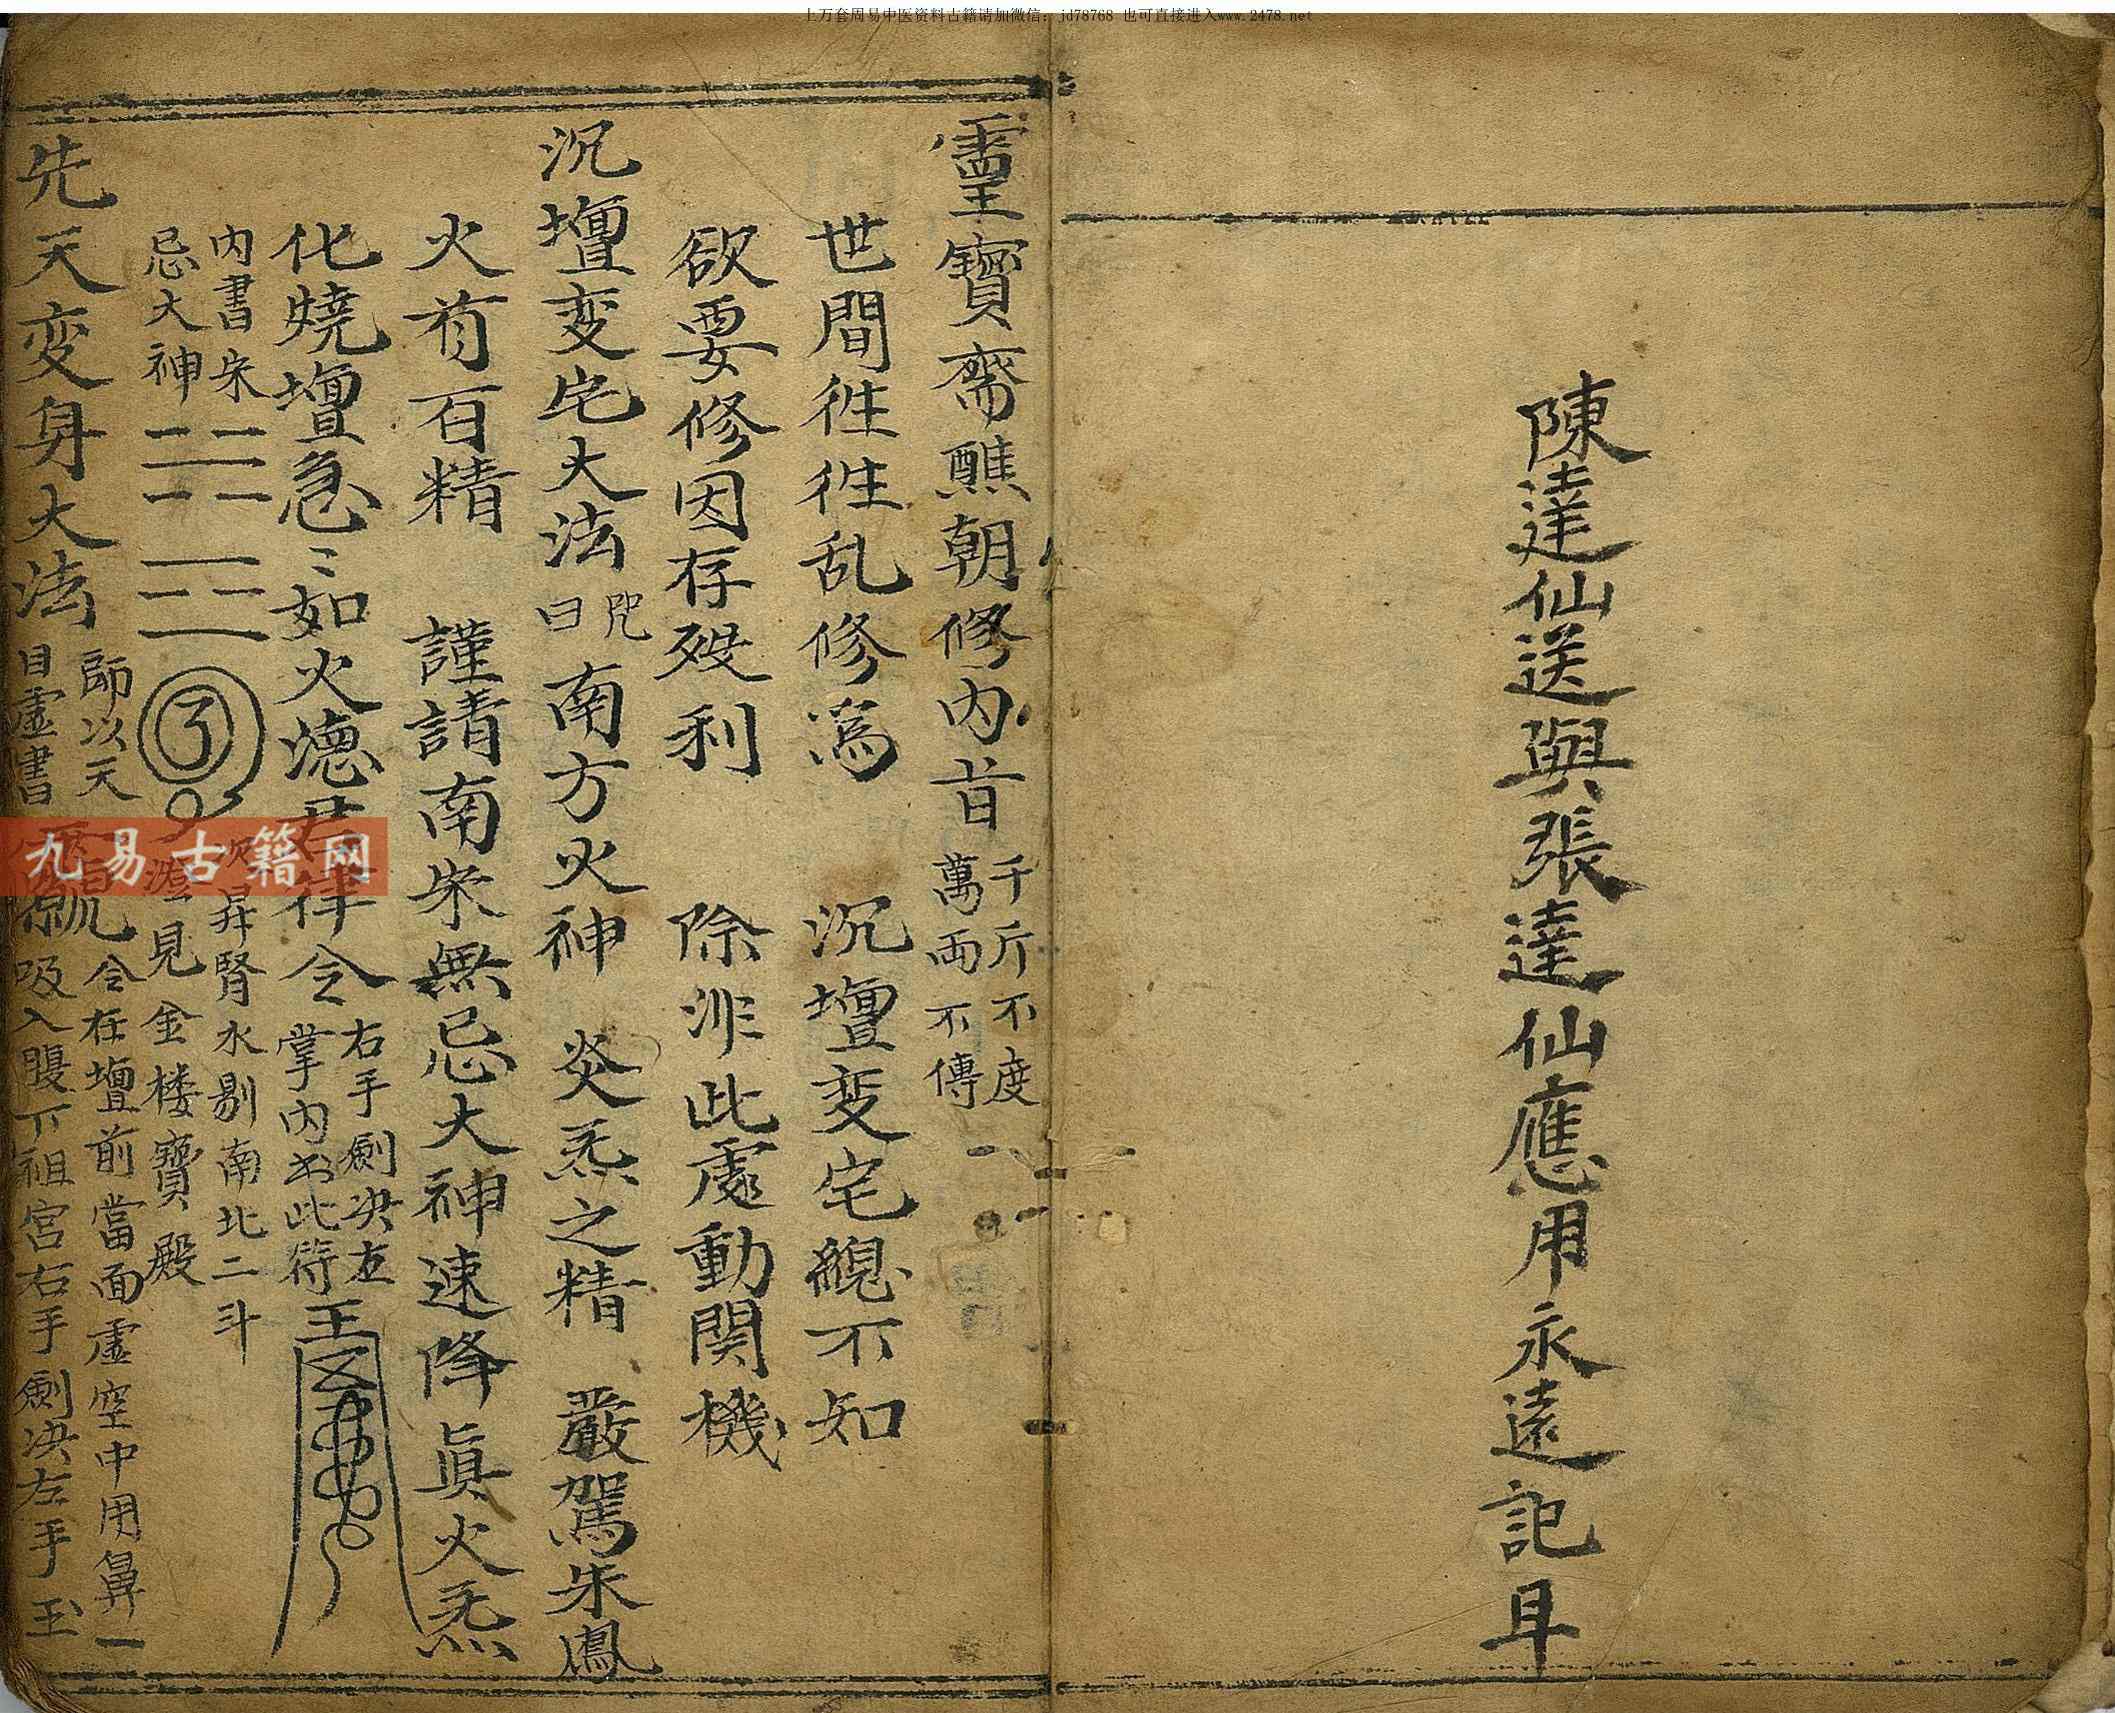 上万套周易中医资料古籍请加微信：jd78768 也可直接进入www.2478.net
陳達仙送與張達仙應用永遠記耳
靈寶齋醮朝修內旨
千斤不度
萬両不傳
世間徃徃乱修爲 沉壇变宅總不知
欲要修因存殁利 除非此處動関機
沉壇变宅大法
咒
曰
南方火神 炎炁之精 嚴駕朱鳳
火有百精 謹請南朱無忌大神速降眞火炁
化燒壇急〻如火德君律令
右手劍决左
掌內書此符
內書朱
忌大神
次昇腎水剔南北二斗
見金楼寶殿
先天变身大法
師以天
目虛書
令在壇前當面虛空中用鼻一
吸入腹下祖宮右手劍决左手玉
九易古籍网